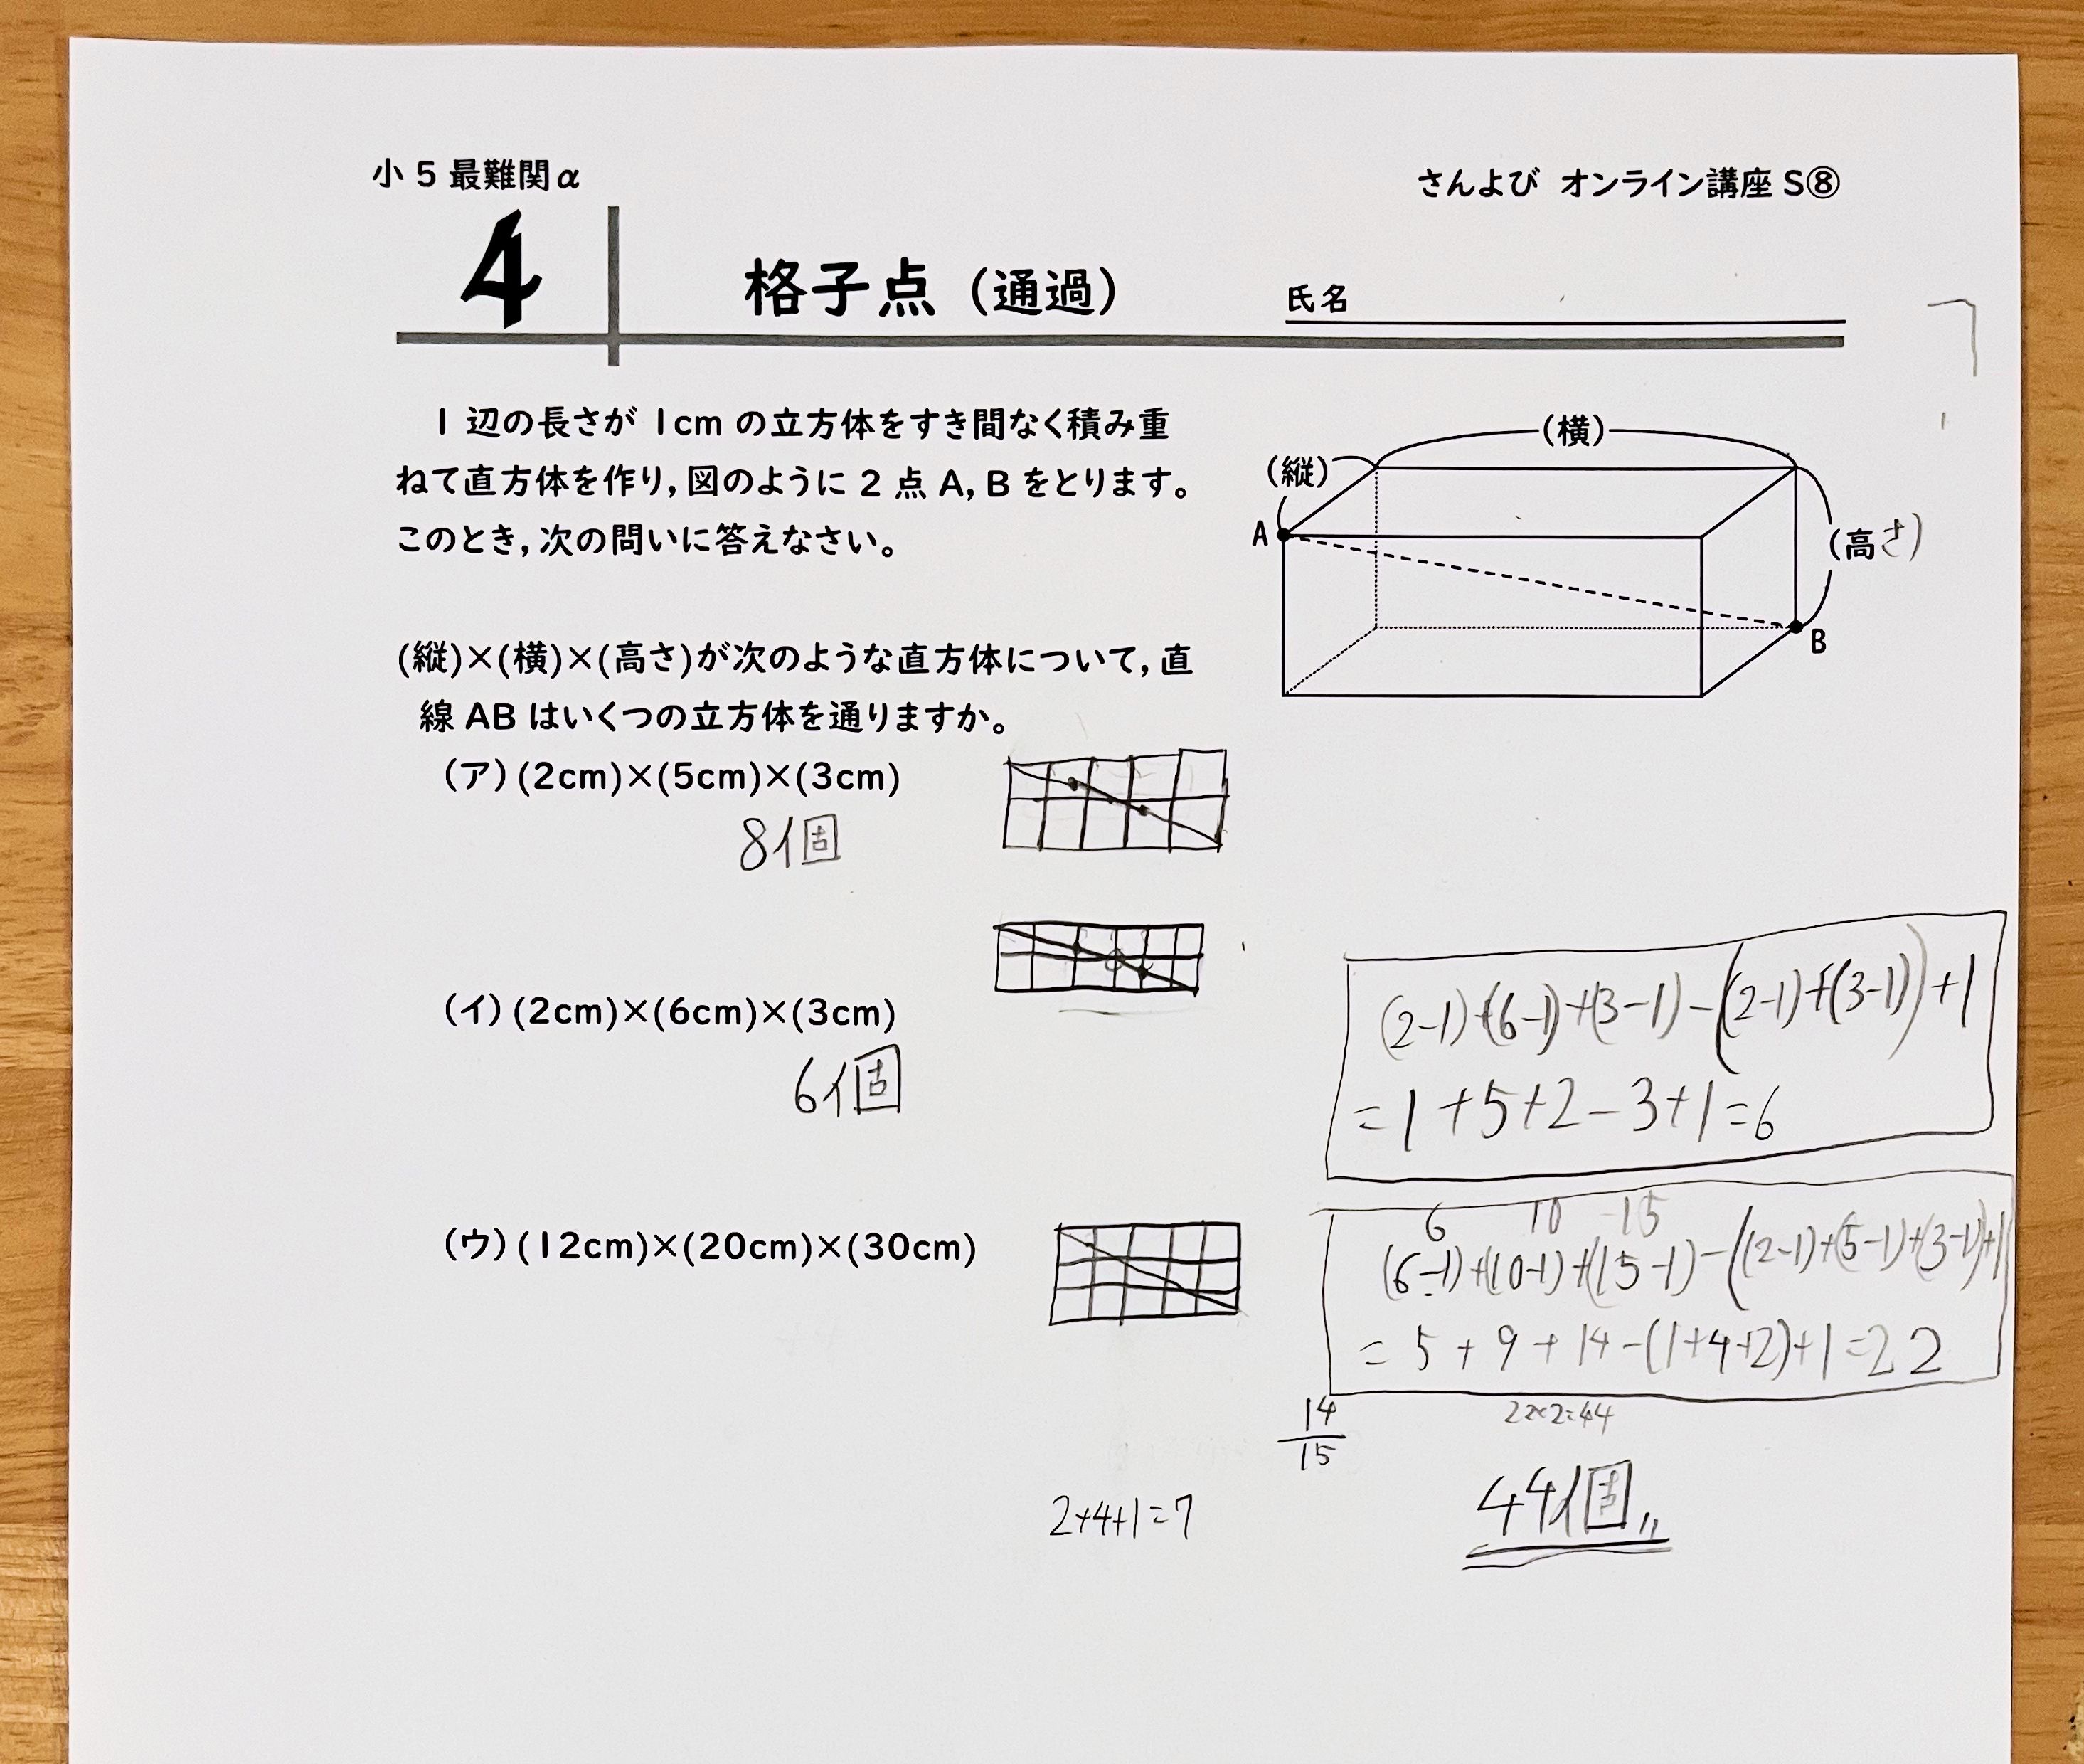 小5最難関α
さんよび オンライン講座 S⑧
4
格子点(通過)
氏名
1辺の長さが1cmの立方体をすき間なく積み重
ねて直方体を作り,図のように2点A,Bをとります。
このとき,次の問いに答えなさい。
(横)
(縦)
A
(高さ)
B
(縦)×(横)×(高さ)が次のような直方体について,直
線ABはいくつの立方体を通りますか。
(ア)(2cm)×(5cm)×(3cm)
8個
(イ)(2cm)×(6cm)×(3cm)
6個
(2-1)+(6-1)+(3-1)-((2-1)+(3-1))+1
=1+5+2-3+1=6
(ウ)(12cm)×(20cm)×(30cm)
6 10 15
(6-1)+(10-1)+(15-1)-((2-1)+(5-1)+(3-1))+1
=5+9+14-(1+4+2)+1=22
14
15
22×2=44
44個
2+4+1=7